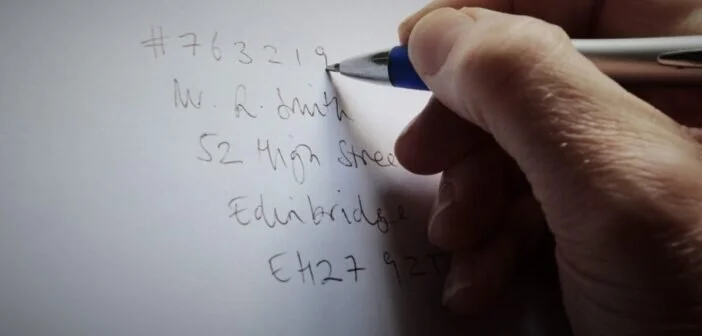 #763219
Mr. R. Smith
52 High Stree
Edinbridge
EH27 9ZT